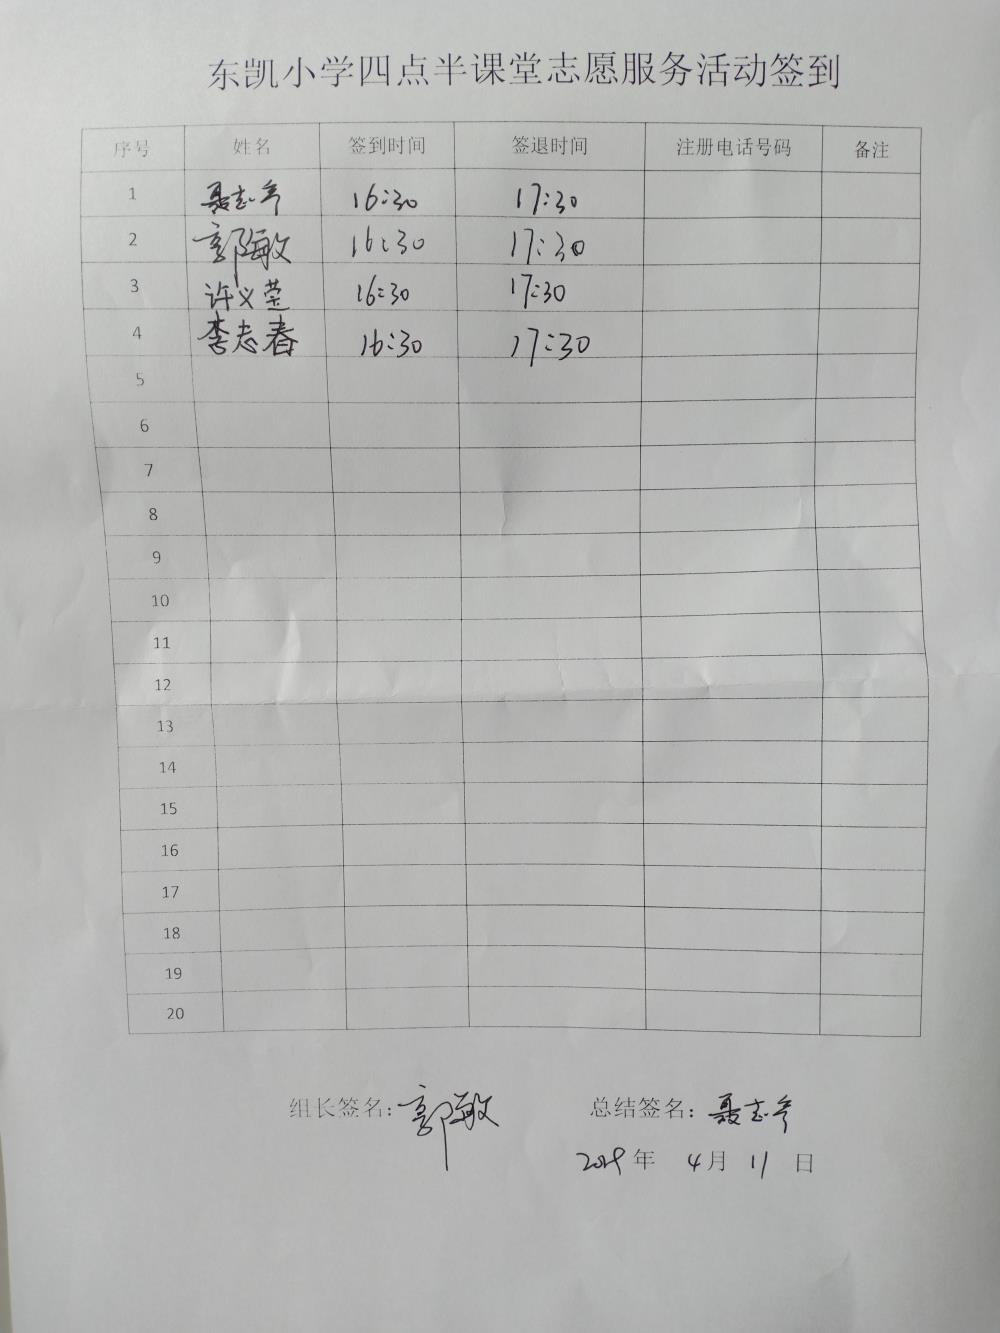 东凯小学四点半课堂志愿服务活动签到
序号 姓名 签到时间 签退时间 注册电话号码 备注
1 聂志 16:30 17:30
2 郭敏 16:30 17:30
3 许义莹 16:30 17:30
4 李志春 16:30 17:30
5
6
7
8
9
10
11
12
13
14
15
16
17
18
19
20
组长签名:郭敏 总结签名:聂志
2019年 4月 11日